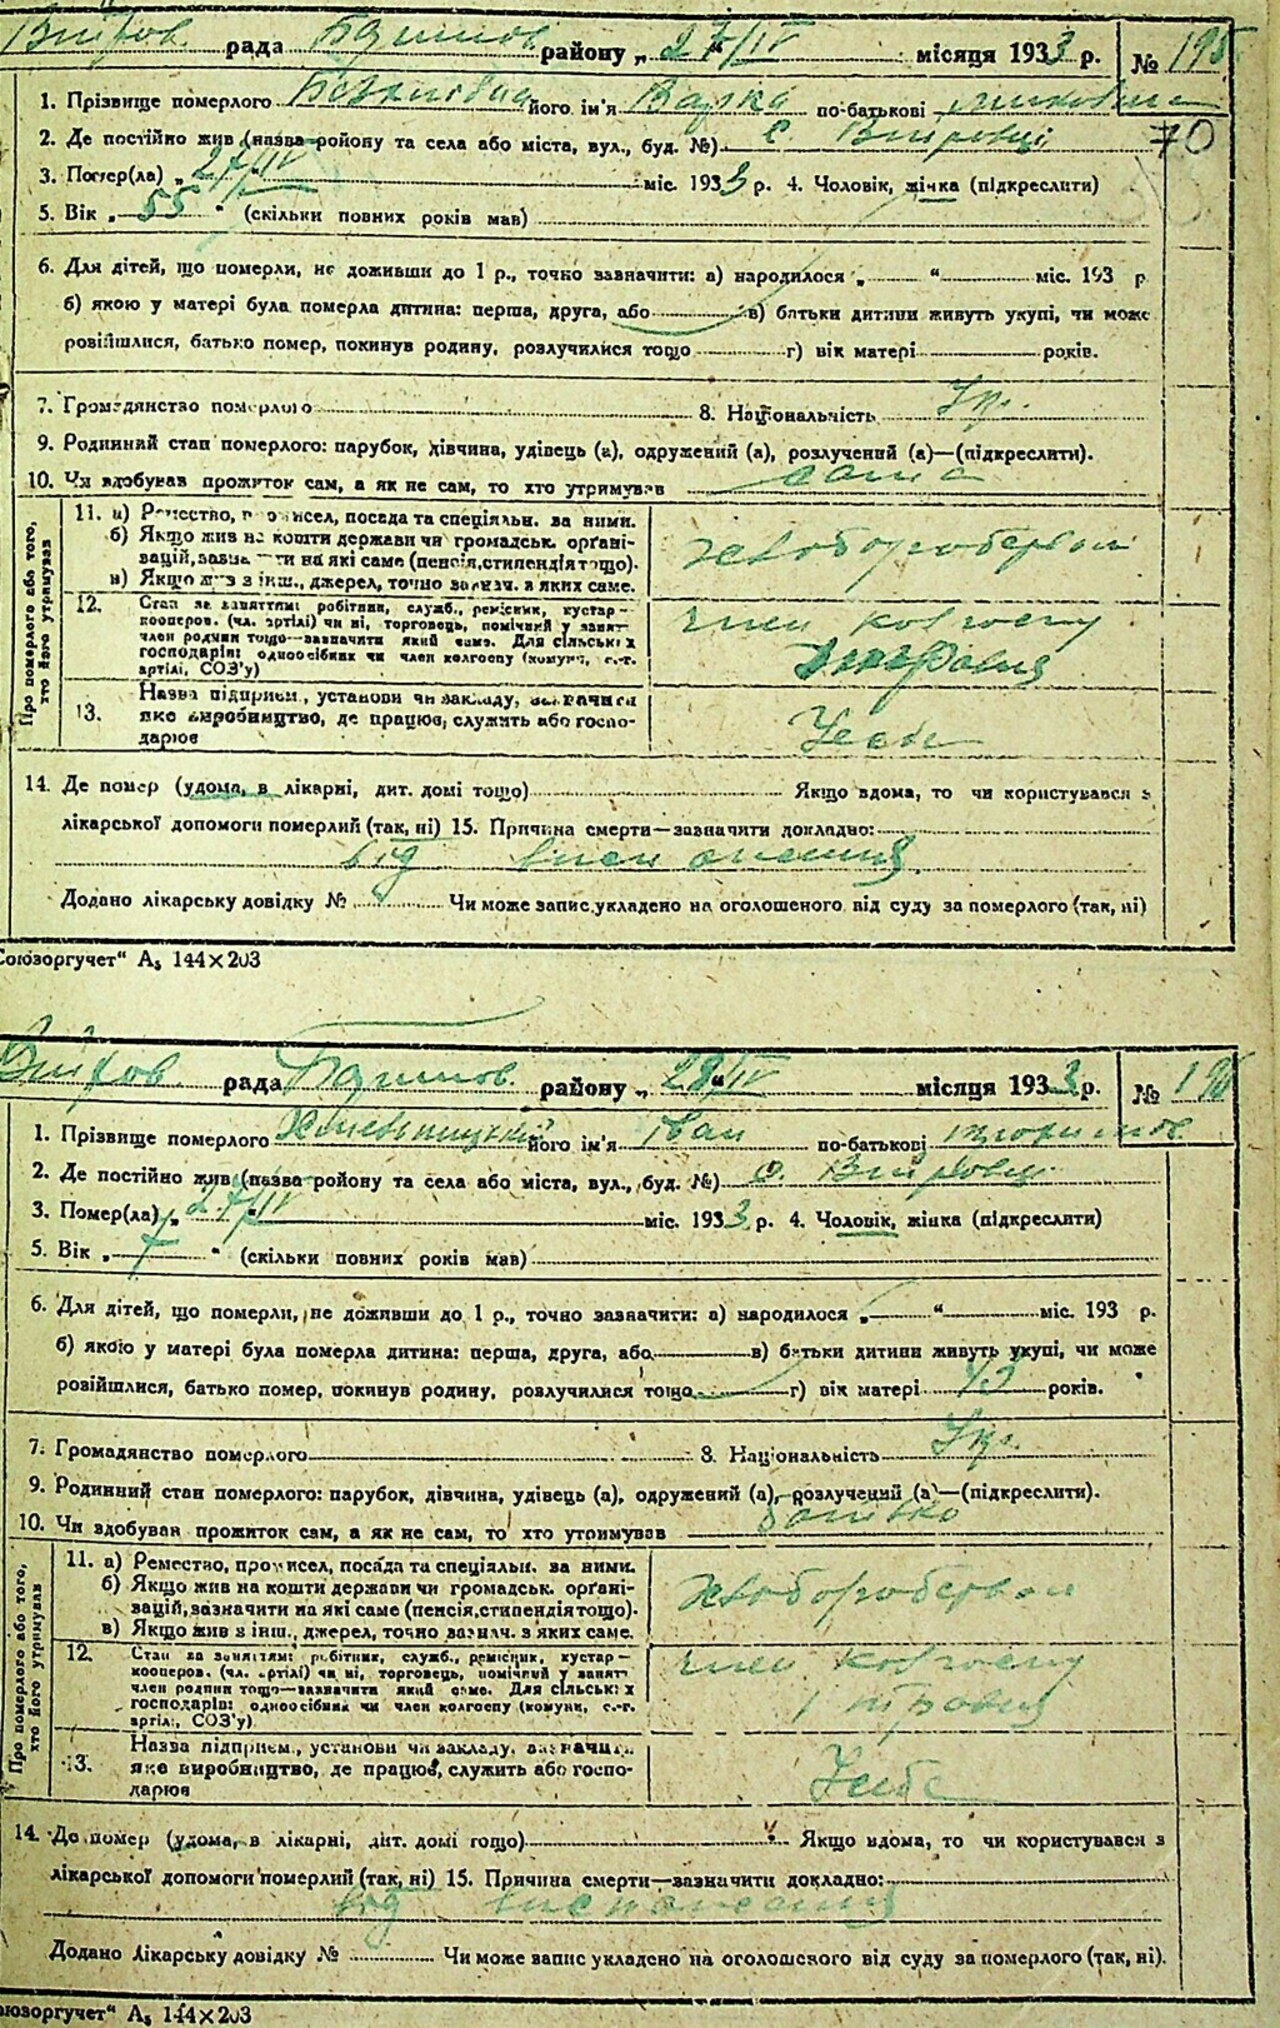 рада району „27/IV місяця 1933 р. №
1. Прізвище померлого його ім'я Варка по-батькові
2. Де постійно жив (назва ройону та села або міста, вул., буд. №) с.
3. Помер(ла) „27/IV міс. 1933 р. 4. Чоловік, жінка (підкреслити)
5. Вік „55" (скільки повних років мав)
6. Для дітей, що померли, не доживши до 1 р., точно зазначити: а) народилося „ " міс. 193 р
б) якою у матері була померла дитина: перша, друга, або в) батьки дитини живуть укупі, чи може
розійшлися, батько помер, покинув родину, розлучилися тощо г) вік матері років.
7. Громадянство померлого 8. Національність Укр.
9. Родинний стан померлого: парубок, дівчина, удівець (а), одружений (а), розлучений (а)—(підкреслити).
10. Чи здобував прожиток сам, а як не сам, то хто утримував сама
Про померлого або того, хто його утримував
11. а) Ремество, промисел, посада та спеціяльн. за ними.
б) Якщо жив на кошти держави чи громадськ. орґані-
зацій, зазначити на які саме (пенсія, стипендія тощо).
в) Якщо жив з інш., джерел, точно зазнач. з яких саме.
хліборобервом
12. Стан за заняттям: робітник, служб., ремісник, кустар—
кооперов. (чл. артілі) чи ні, торговець, помічний у занят.
член родини тощо—зазначити який саме. Для сільських
господарів: одноосібник чи член колгоспу (комуни, с.-г.
артілі, СОЗ'у)
член колгоспу
13. Назва підприєм., установи чи закладу, зазначити
яке виробництво, де працює, служить або госпо-
дарює
14. Де помер (удома, в лікарні, дит. домі тощо) Якщо вдома, то чи користувався з
лікарської допомоги померлий (так, ні) 15. Причина смерти—зазначити докладно:
від виснаження
Додано лікарську довідку № Чи може запис укладено на оголошеного від суду за померлого (так, ні)
Союзоргучет" А₅ 144×203
рада району „28/IV місяця 1933 р. №
1. Прізвище померлого його ім'я Іван по-батькові
2. Де постійно жив (назва ройону та села або міста, вул., буд. №) с.
3. Помер(ла) „27/IV міс. 1933 р. 4. Чоловік, жінка (підкреслити)
5. Вік „7" (скільки повних років мав)
6. Для дітей, що померли, не доживши до 1 р., точно зазначити: а) народилося „ " міс. 193 р.
б) якою у матері була померла дитина: перша, друга, або в) батьки дитини живуть укупі, чи може
розійшлися, батько помер, покинув родину, розлучилися тощо г) вік матері років.
7. Громадянство померлого 8. Національність Укр.
9. Родинний стан померлого: парубок, дівчина, удівець (а), одружений (а), розлучений (а)—(підкреслити).
10. Чи здобував прожиток сам, а як не сам, то хто утримував батько
Про померлого або того, хто його утримував
11. а) Ремество, промисел, посада та спеціяльн. за ними.
б) Якщо жив на кошти держави чи громадськ. орґані-
зацій, зазначити на які саме (пенсія, стипендія тощо).
в) Якщо жив з інш., джерел, точно зазнач. з яких саме.
хліборобервом
12. Стан за заняттям: робітник, служб., ремісник, кустар—
кооперов. (чл. артілі) чи ні, торговець, помічний у занят.
член родини тощо—зазначити який саме. Для сільських
господарів: одноосібник чи член колгоспу (комуни, с.-г.
артілі, СОЗ'у)
член колгоспу
13. Назва підприєм., установи чи закладу, зазначити
яке виробництво, де працює, служить або госпо-
дарює
14. Де помер (удома, в лікарні, дит. домі тощо) Якщо вдома, то чи користувався з
лікарської допомоги померлий (так, ні) 15. Причина смерти—зазначити докладно:
від виснаження
Додано лікарську довідку № Чи може запис укладено на оголошеного від суду за померлого (так, ні).
юзоргучет" А₅ 144×203